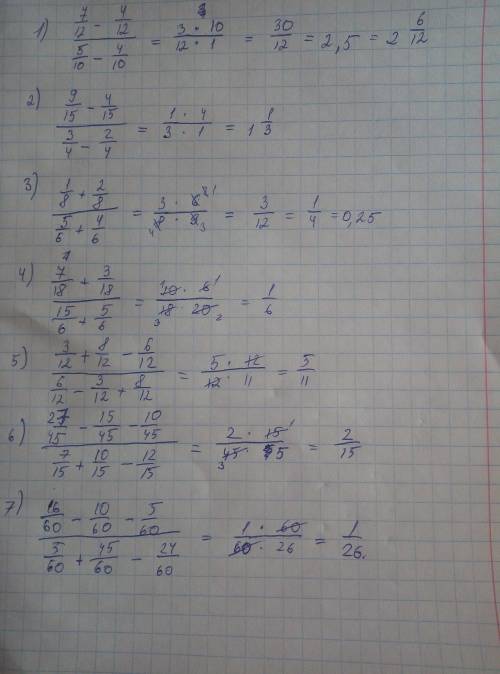 1) (7/12 - 4/12) / (5/10 - 4/10) = (3 · 10) / (12 · 1) = 30/12 = 2,5 = 2 6/12
2) (9/15 - 4/15) / (3/4 - 2/4) = (1 · 4) / (3 · 1) = 1 1/3
3) (1/8 + 2/8) / (5/6 + 4/6) = (3 · 6) / (8 · 9) = 3/12 = 1/4 = 0,25
4) (7/18 + 3/18) / (15/6 + 5/6) = (10 · 6) / (18 · 20) = 1/6
5) (3/12 + 8/12 - 6/12) / (6/12 - 3/12 + 8/12) = (5 · 12) / (12 · 11) = 5/11
6) (27/45 - 15/45 - 10/45) / (7/15 + 10/15 - 12/15) = (2 · 15) / (45 · 5) = 2/15
7) (16/60 - 10/60 - 5/60) / (5/60 + 45/60 - 24/60) = (1 · 60) / (60 · 26) = 1/26.